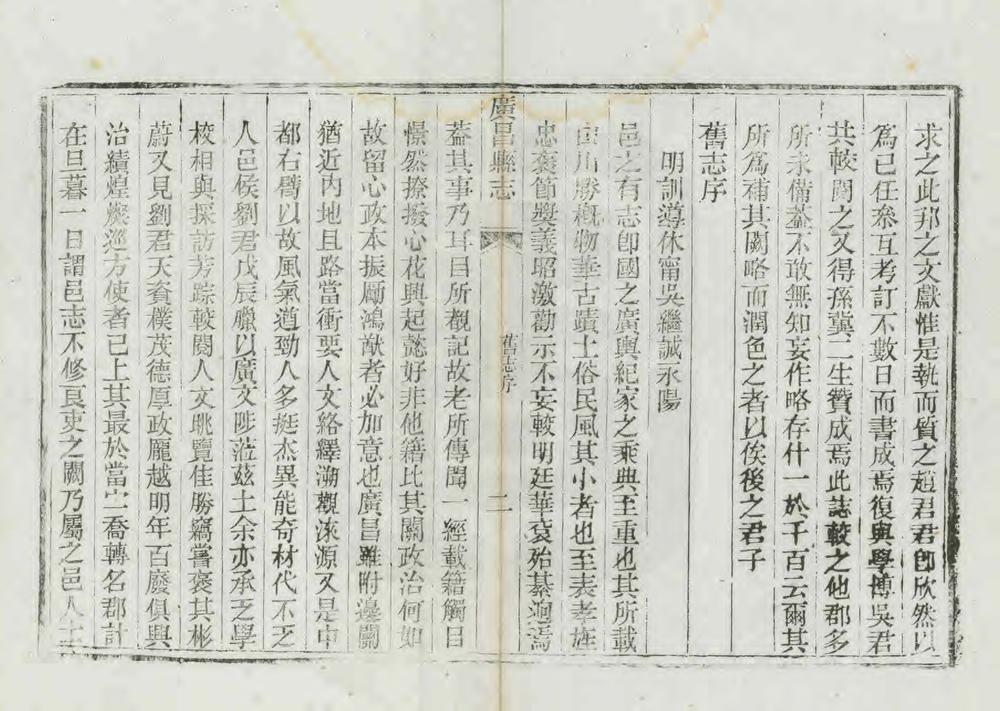 求之此邦之文獻惟是執而質之趙君君卽欣然以
為己任叅互考訂不數日而書成焉復與學博吳君
共較閱之又得孫冀二生贊成焉此誌較之他郡多
所未備葢不敢無知妄作略存什一於千百云爾其
所為補其闕略而潤色之者以俟後之君子
舊志序
明訓導休甯吳繼誠永陽
邑之有志卽國之廣輿紀家之乘典至重也其所載
川勝槪物華古蹟土俗民風其小者也至表孝旌
忠褒節獎義昭激勸示不妄較明廷華袞殆綦逈焉
廣昌縣志
舊志序
二
葢其事乃耳目所覩記故老所傳聞一經載籍觸目
憬然撩撥心花興起懿好非他籍比其關政治何如
故留心政本振勵鴻猷者必加意也廣昌雖附邊關
猶近內地且路當衝要人文絡繹溯觀淶源又是中
都右臂以故風氣遒勁人多挺杰異能奇材代不乏
人邑侯劉君戊辰臘以廣文陟蒞茲土余亦承乏學
校相與採訪芳踪較閱人文眺覽佳勝竊嘗褒其彬
蔚又見劉君天賚樸茂德厚政龐越明年百廢俱興
治績煌燦巡方使者已上其最於當宁喬轉名郡計
在旦暮一日謂邑志不修良吏之闕乃屬之邑人士